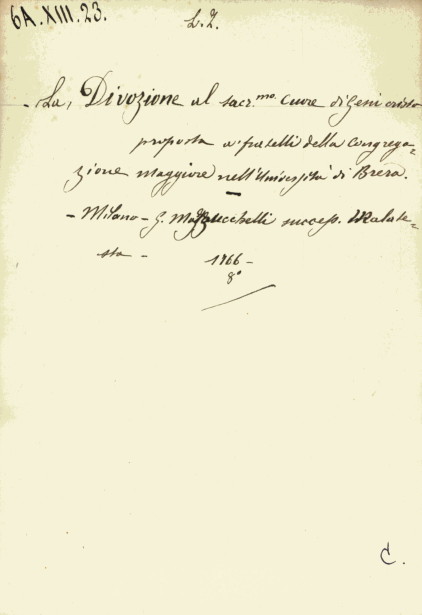 6A.XIII.23.
L.Z.
- La, Divozione al sacr.mo Cuore di Gesù cristo
proposta a' fratelli della Congrega=
zione maggiore nell'Università di Brera.
- Milano - G. Mazzucchelli success. Malate=
sta - 1766 -
8°
C.